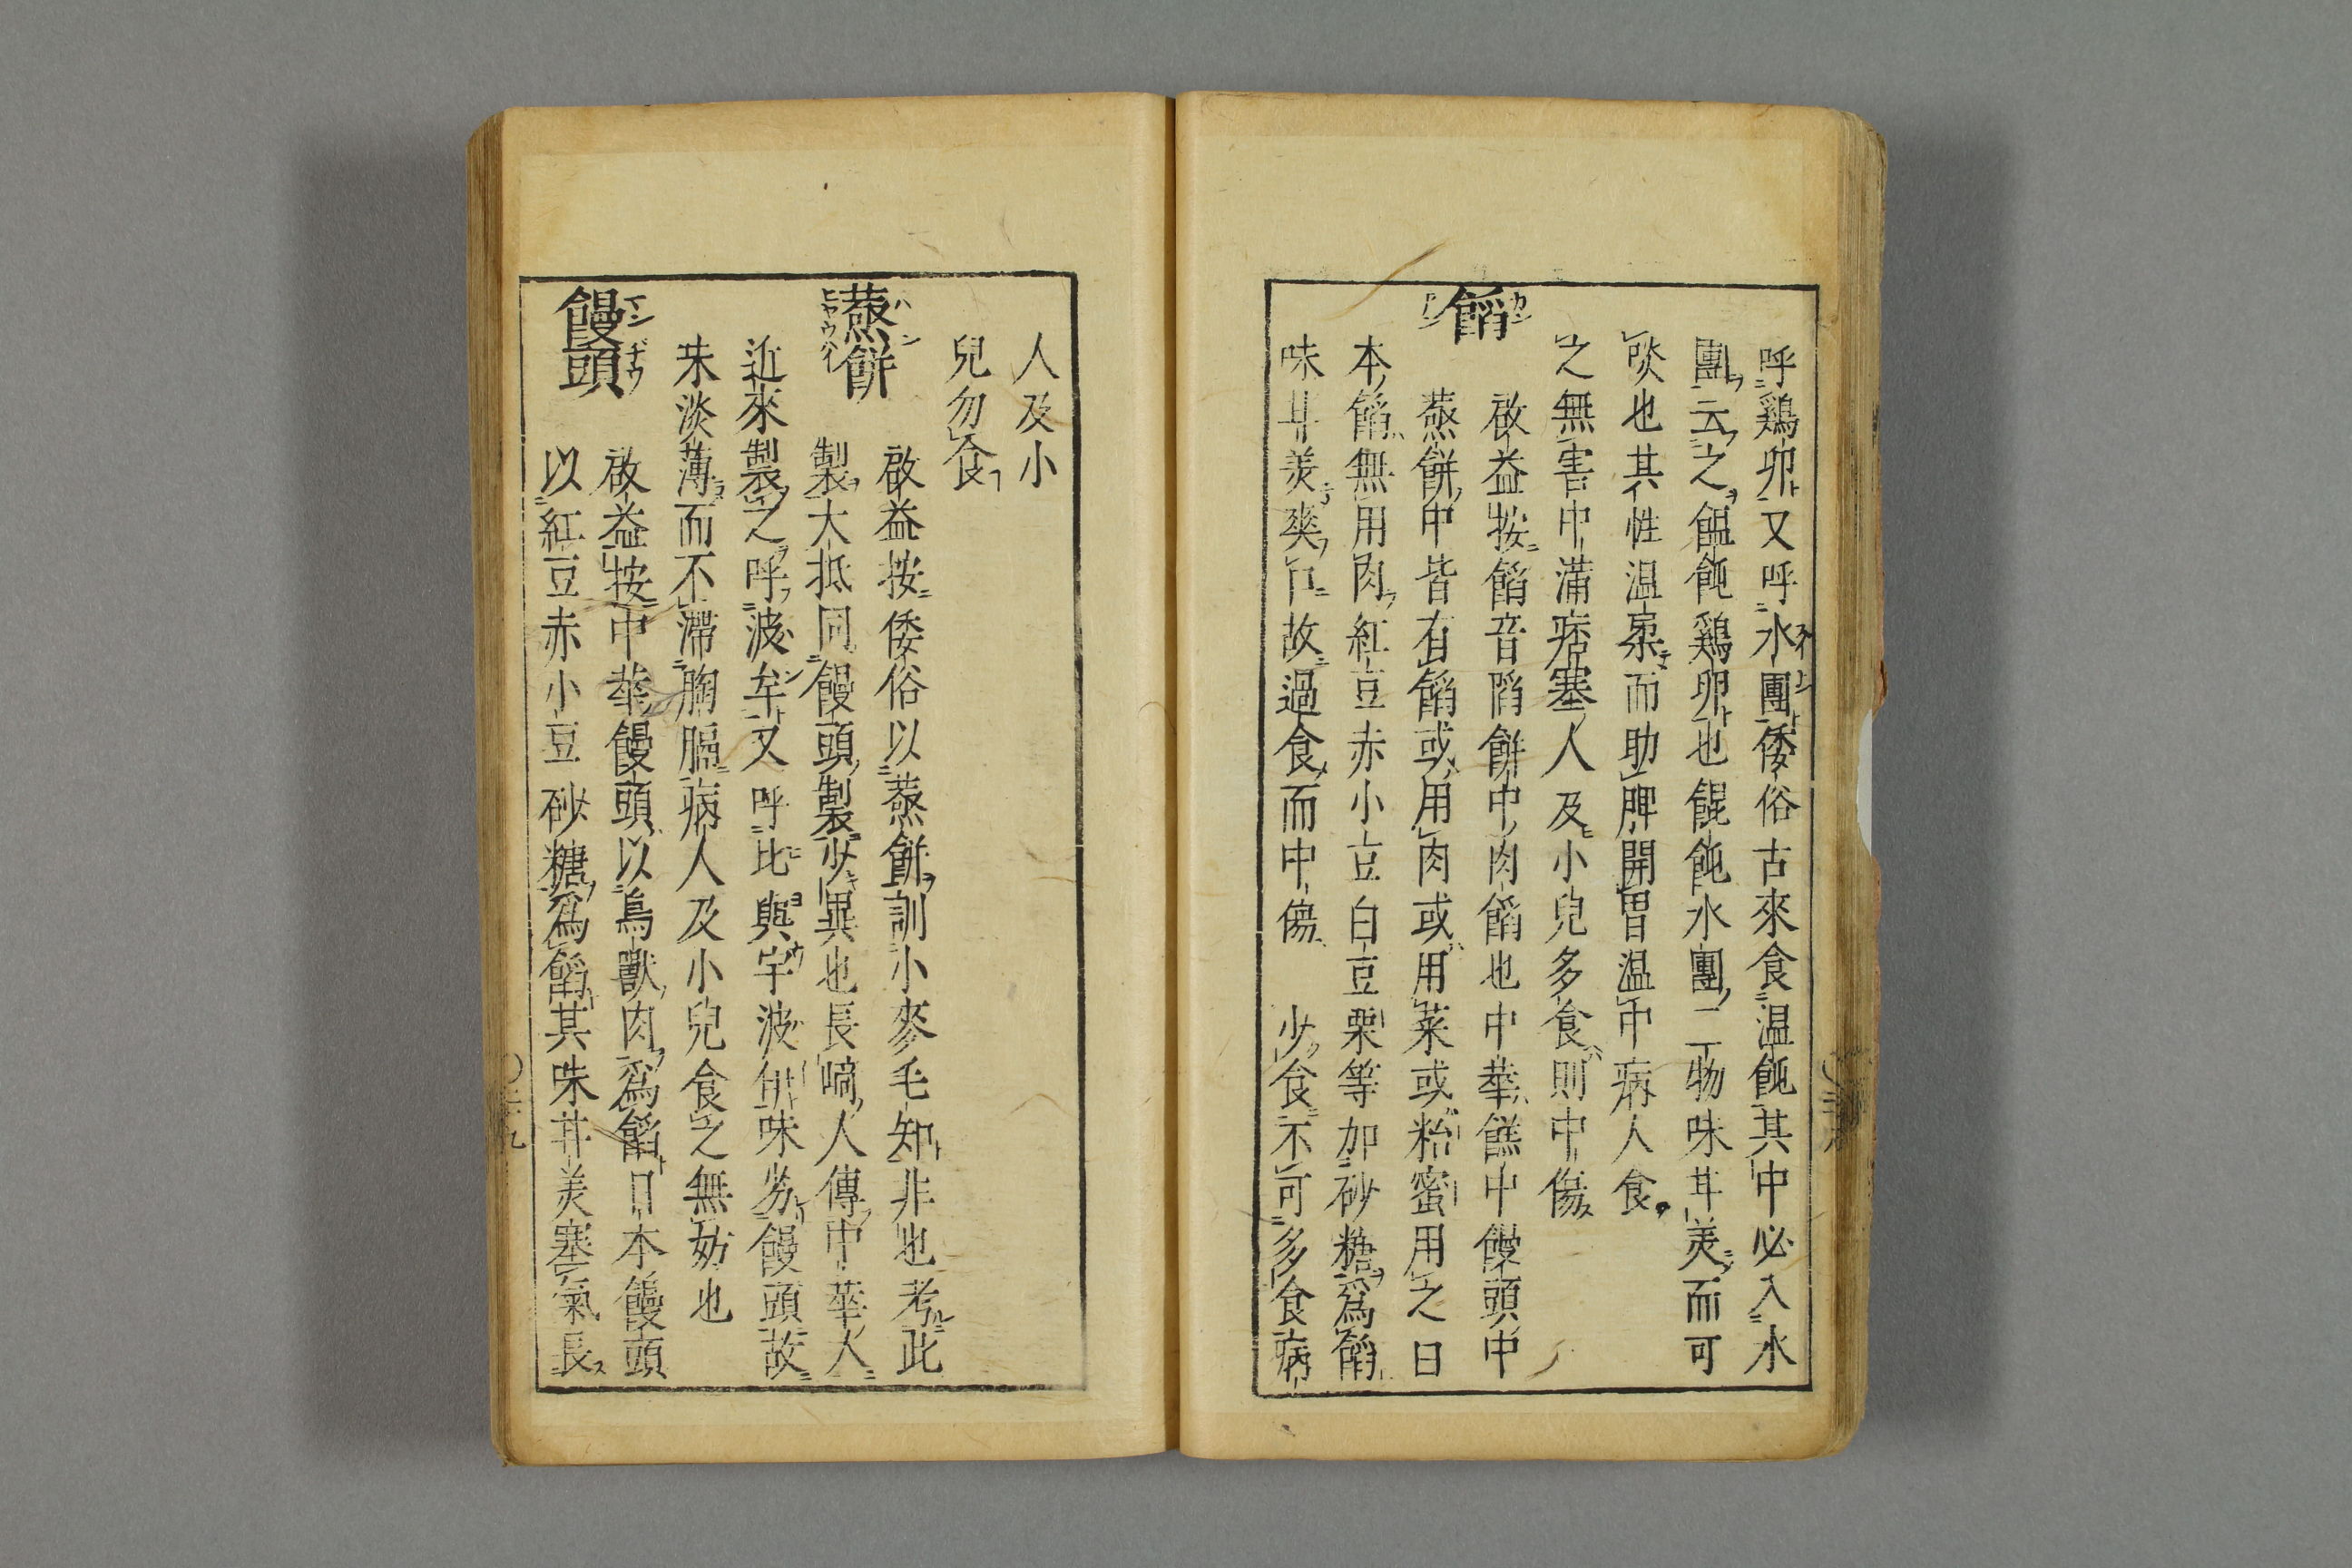 呼鶏卵又呼水團倭俗古來食温飩其中必入水
團云之饂飩鷄卵也餛飩水團二物味甘美而可
啖也其性温柔而助脾開胃温中病人食
之無害中滿痞塞人及小兒多食則中傷
餡
啟益按餡音陷餅中肉餡也中華餻中饅頭中
蒸餅中皆有餡或用肉或用菜或粘蜜用之日
本餡無用肉紅豆赤小豆白豆栗等加砂糖爲餡
味甘美爽口故過食而中傷 少食不可多食病
人及小
兒勿食
蒸餅
啟益按倭俗以蒸餅訓小麥毛知非也考此
製大抵同饅頭製少異也長崎人傳中華人
近來製之呼波牟又呼比與宇波伊味劣饅頭故
味淡薄而不滯胸膈病人及小兒食之無妨也
饅頭
啟益按中華饅頭以鳥獸肉爲餡日本饅頭
以紅豆赤小豆砂糖爲餡其味甘美塞氣長